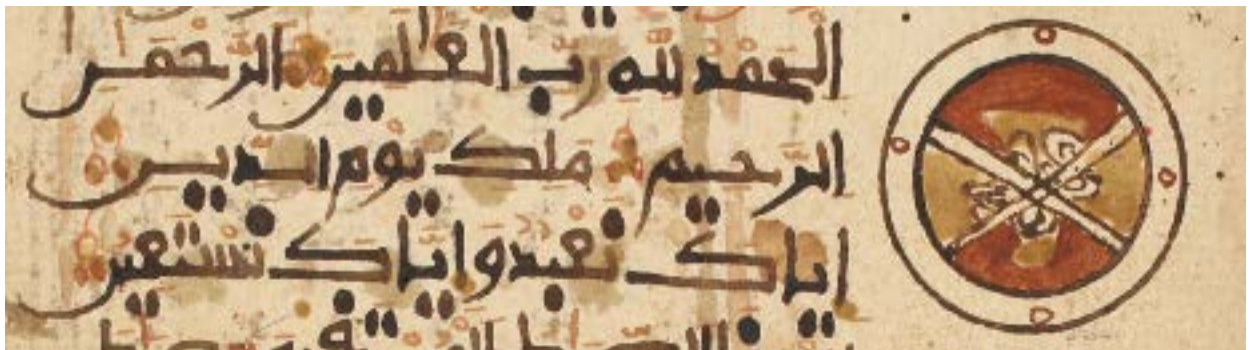 الحمد لله رب العلمين الرحمن
الرحيم ملك يوم الدين
اياك نعبد واياك نستعين